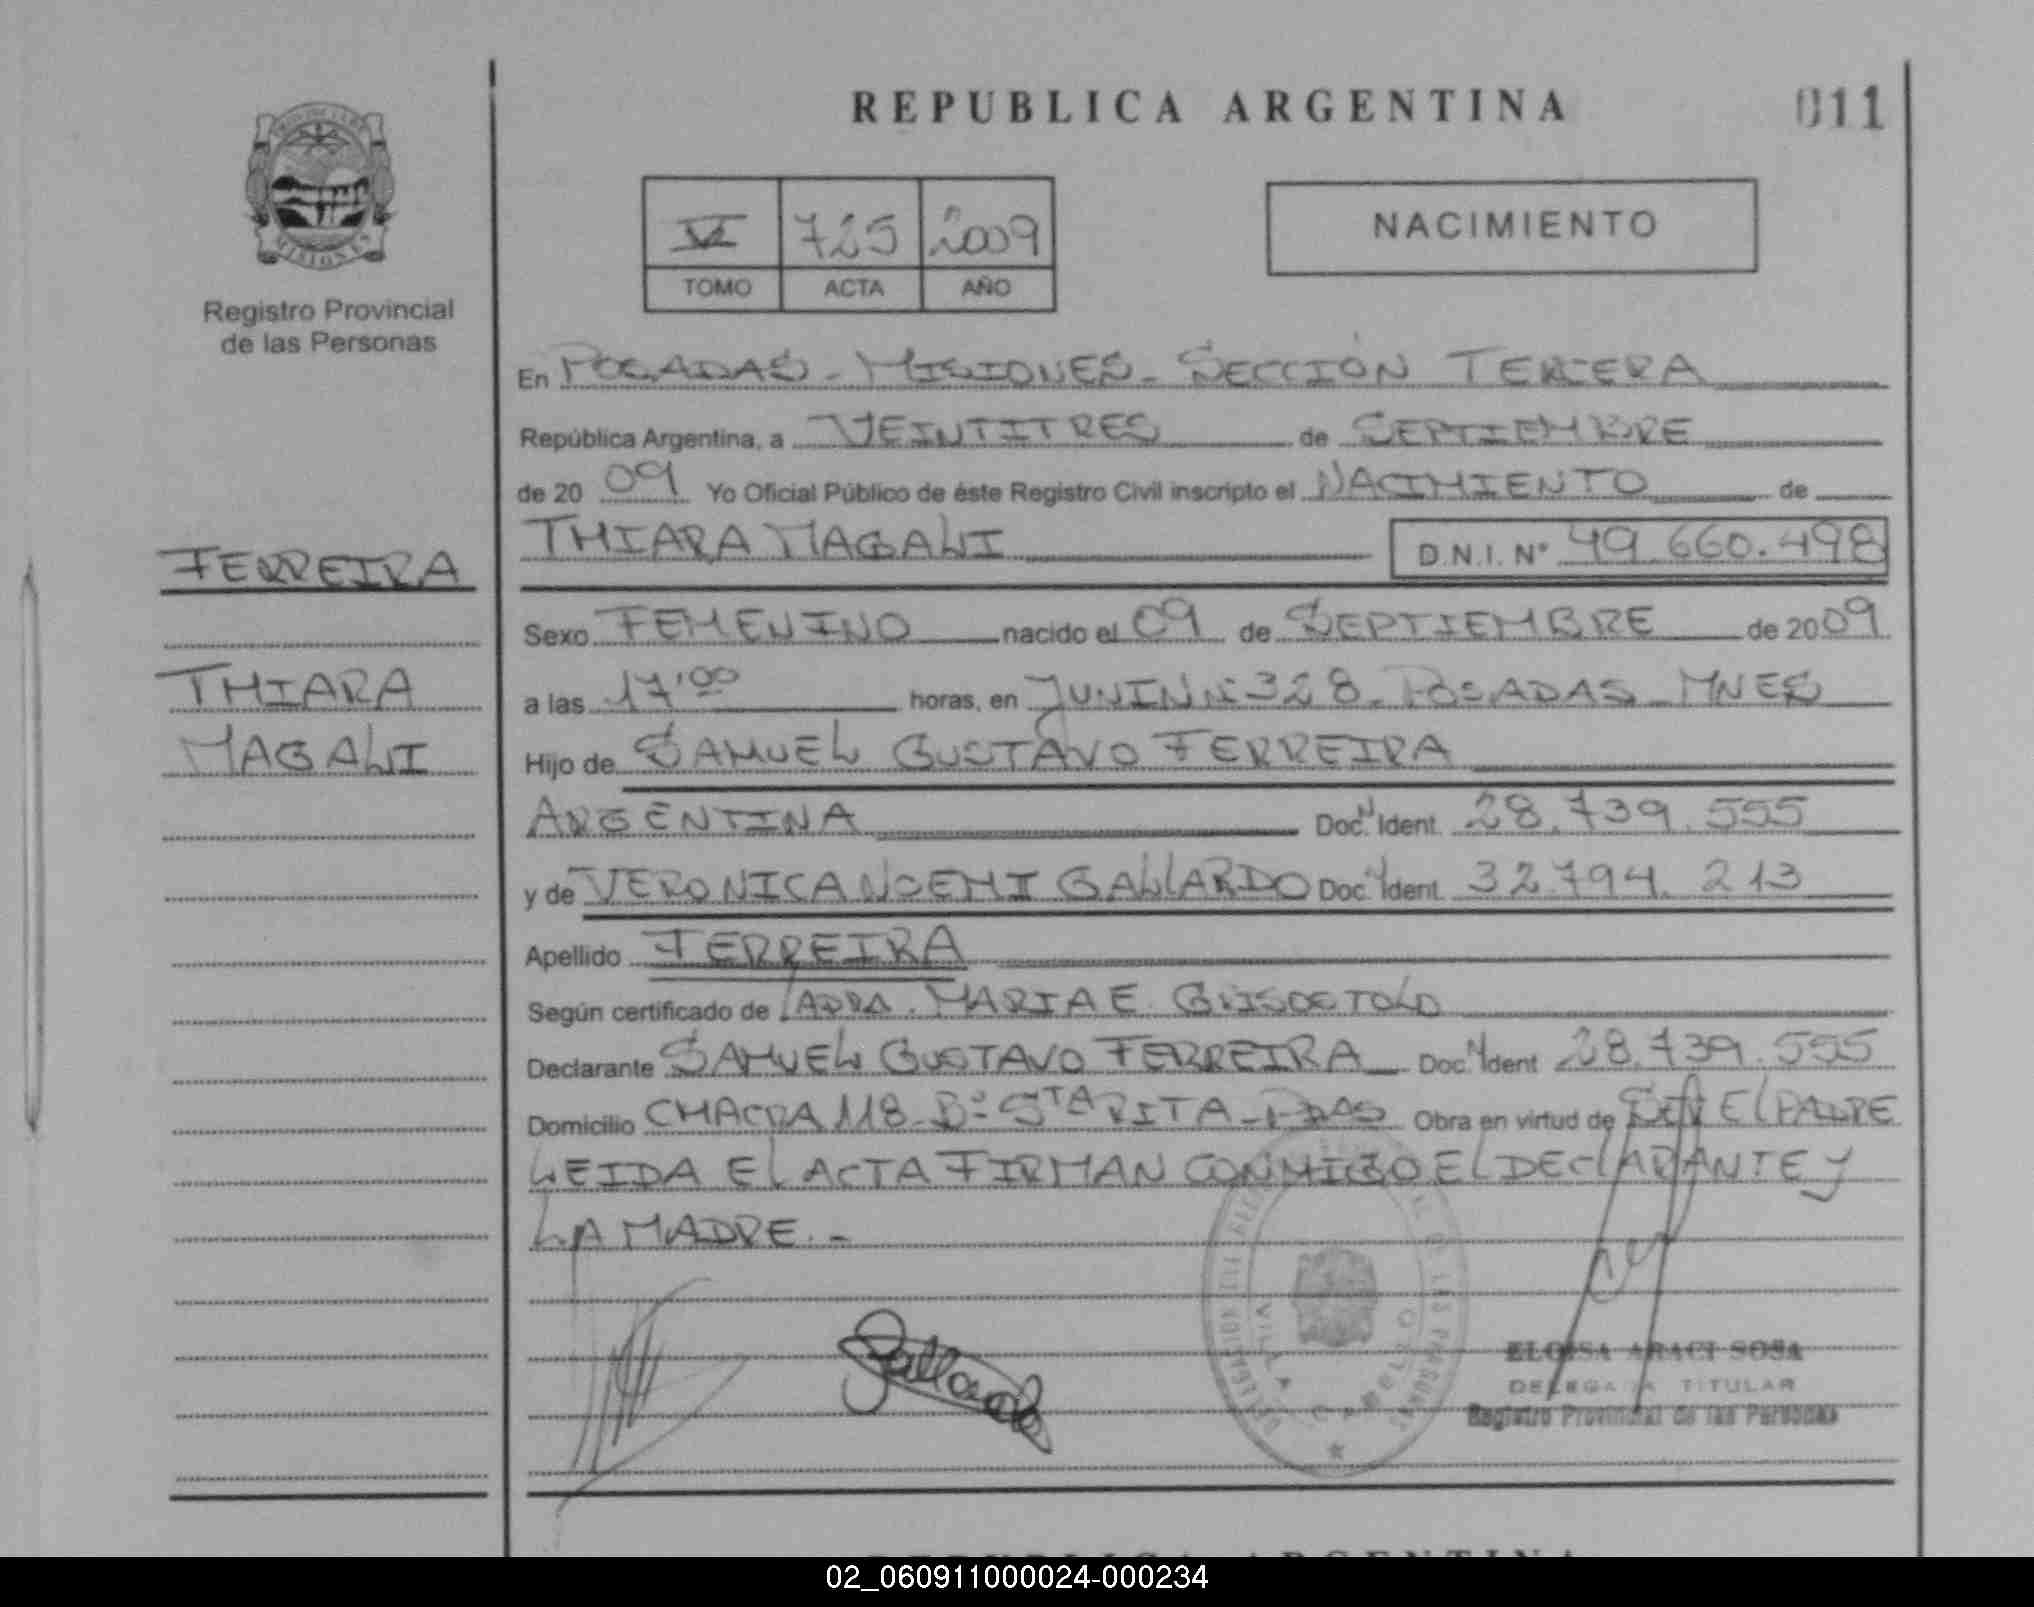 REPUBLICA ARGENTINA
011
VI 725 2009
TOMO ACTA AÑO
NACIMIENTO
MISIONES
Registro Provincial
de las Personas
En POSADAS - MISIONES - SECCIÓN TERCERA
República Argentina, a VEINTITRES de SEPTIEMBRE
de 20 09 Yo Oficial Público de éste Registro Civil inscripto el NACIMIENTO de
THIARA MAGALI D.N.I. Nº 49.660.498
FERREIRA
THIARA
MAGALI
Sexo FEMENINO nacido el 09 de SEPTIEMBRE de 2009
a las 17'00 horas, en JUNIN Nº 328 - POSADAS - MNES
Hijo de SAMUEL GUSTAVO FERREIRA
ARGENTINA Doc. N Ident. 28.739.555
y de VERONICA NOEMI GALLARDO Doc. N Ident. 32.794.213
Apellido FERREIRA
Según certificado de LA DRA. MARIA E.
Declarante SAMUEL GUSTAVO FERREIRA Doc. N Ident. 28.739.555
Domicilio CHACRA 118 - Bº STA RITA - PDAS Obra en virtud de SER EL PADRE
LEIDA EL ACTA FIRMAN CONMIGO EL DECLARANTE Y
LA MADRE. -
Gallardo
ELOISA ARACI SOSA
DELEGADA TITULAR
Registro Provincial de las Personas
REPUBLICA ARGENTINA
02_060911000024-000234